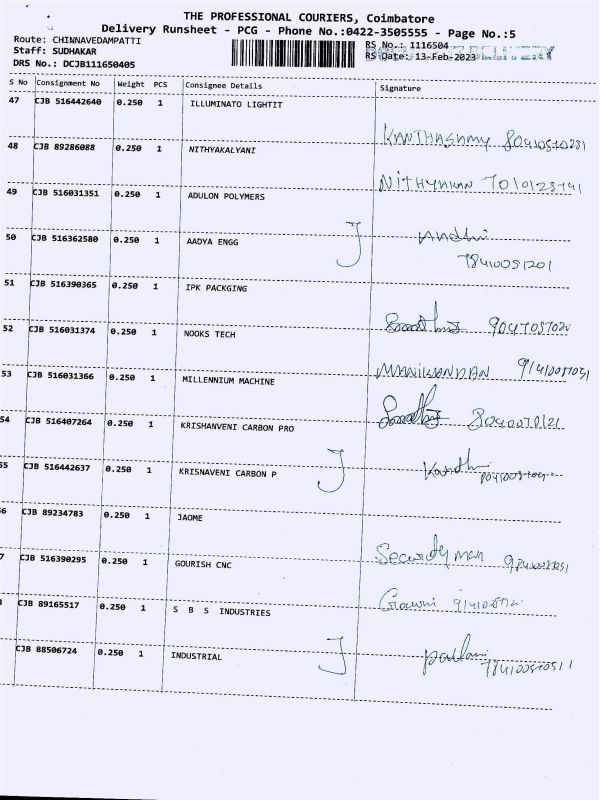 THE PROFESSIONAL COURIERS, Coimbatore
Delivery Runsheet - PCG - Phone No.:0422-3505555 - Page No.:5
Route: CHINNAVEDAMPATTI
RS No.: 1116504
Staff: SUDHAKAR
RS Date: 13-Feb-2023
DRS No.: DCJB111650405
S No Consignment No Weight PCS Consignee Details Signature
47 CJB 516442640 0.250 1 ILLUMINATO LIGHTIT
KANTHASAMY
48 CJB 89286088 0.250 1 NITHYAKALYANI
49 CJB 516031351 0.250 1 ADULON POLYMERS
50 CJB 516362580 0.250 1 AADYA ENGG
51 CJB 516390365 0.250 1 IPK PACKGING
52 CJB 516031374 0.250 1 NOOKS TECH
MANIKANDAN
53 CJB 516031366 0.250 1 MILLENNIUM MACHINE
54 CJB 516407264 0.250 1 KRISHANVENI CARBON PRO
55 CJB 516442637 0.250 1 KRISNAVENI CARBON P
6 CJB 89234783 0.250 1 JAOME
Security man
7 CJB 516390295 0.250 1 GOURISH CNC
CJB 89165517 0.250 1 S B S INDUSTRIES
CJB 88506724 0.250 1 INDUSTRIAL